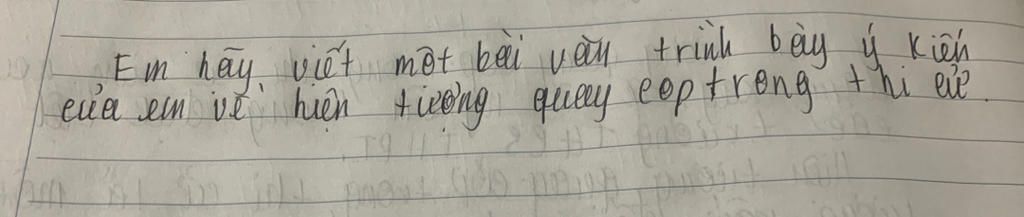 Em hãy viết một bài văn trình bày ý kiến
của em về hiện tượng quay cop trong thi cử.